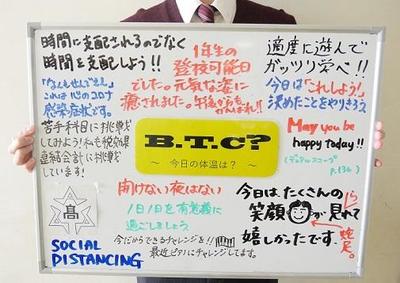 時間に支配されるのでなく
時間を支配しよう!!
1年生の
登校可能日
でした。元気な姿に
癒されました。午後からもがんばれ!!
適度に遊んで
ガッツリ学べ!!
今日は「これしよう!」
決めたことをやりきろう
「なんもせんでええ」
これは心のコロナ
感染症です。
苦手科目に挑戦
してみよう!私も税効果
連結会計に挑戦
しています!
B.T.C?
~ 今日の体温は? ~
May you be
happy today!!
(デュアルスコープ
p.136)
高
SOCIAL
DISTANCING
明けない夜はない
1日1日を有意義に
過ごしましょう
今だからできるチャレンジを!!
最近ピアノにチャレンジしてます。
今日はたくさんの
笑顔が見れて
嬉しかったです。
ら
蛇足。